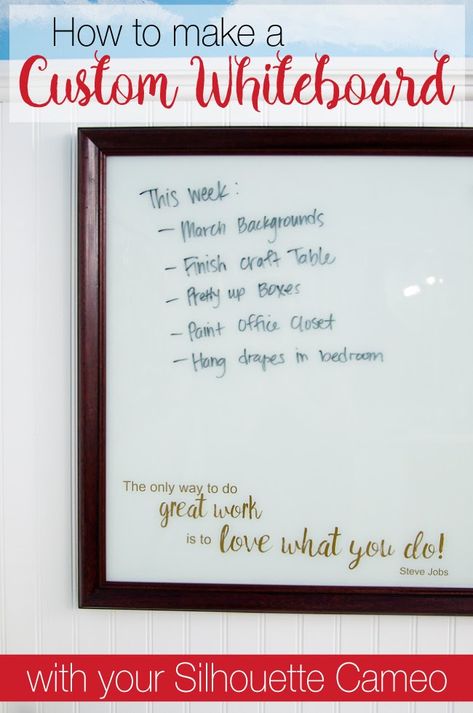 How to make a
Custom Whiteboard
This week:
- March Backgrounds
- Finish craft Table
- Pretty up Boxes
- Paint Office Closet
- Hang drapes in bedroom
The only way to do
great work
is to love what you do!
Steve Jobs
with your Silhouette Cameo